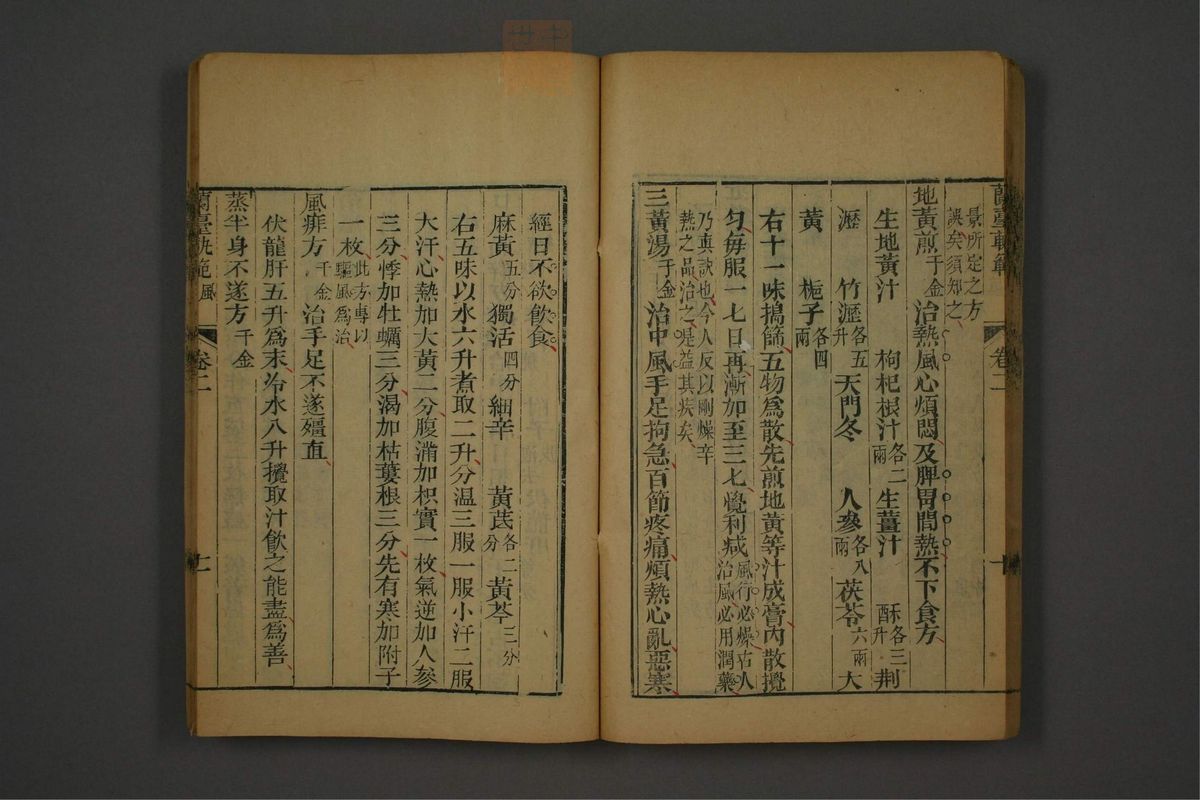 蘭臺軌範
卷二
十
景所定之方
誤矣須知之
地黃煎千金治熱風心煩悶及脾胃間熱不下食方
生地黃汁 枸杞根汁各二兩 生薑汁 酥各三升 荆
瀝 竹瀝各五升 天門冬 人參各八兩 茯苓六兩 大
黃 梔子各四兩
右十一味搗篩五物為散先煎地黃等汁成膏內散攪
勻每服一七日再漸加至三七覺利减風行必燥古人治風必用潤藥
乃真訣也今人反以剛燥辛
熱之品治之是益其疾矣
三黃湯千金治中風手足拘急百節疼痛煩熱心亂惡寒
經日不欲飲食
麻黃五分 獨活四分 細辛 黃茋各二分 黃芩三分
右五味以水六升煮取二升分温三服一服小汗二服
大汗心熱加大黃二分腹滿加枳實一枚氣逆加人參
三分悸加牡蠣三分渴加栝蔞根三分先有寒加附子
一枚此方專以驅風為治
風痱方千金治手足不遂殭直
伏龍肝五升為末冷水八升攪取汁飲之能盡為善
蒸半身不遂方千金
蘭臺軌範 風
卷二